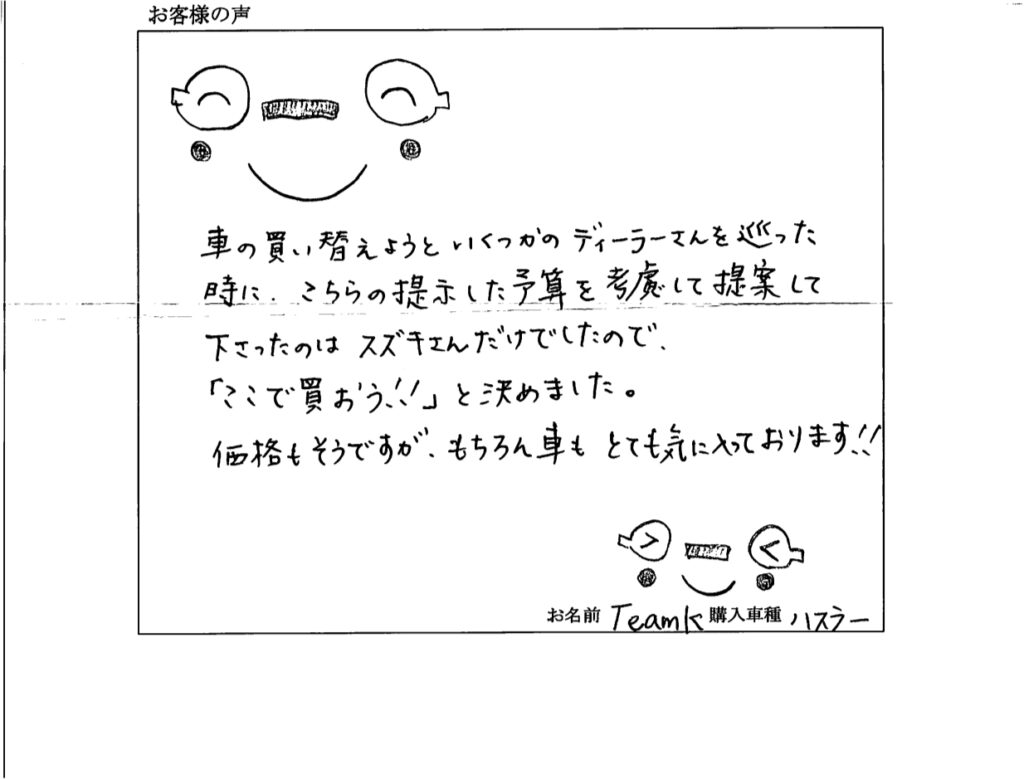 お客様の声
車の買い替えようといくつかのディーラーさんを巡った
時に、こちらの提示した予算を考慮して提案して
下さったのはスズキさんだけでしたので、
「ここで買おう!!」と決めました。
価格もそうですが、もちろん車もとても気に入っております!!
お名前 TeamK 購入車種 ハスラー